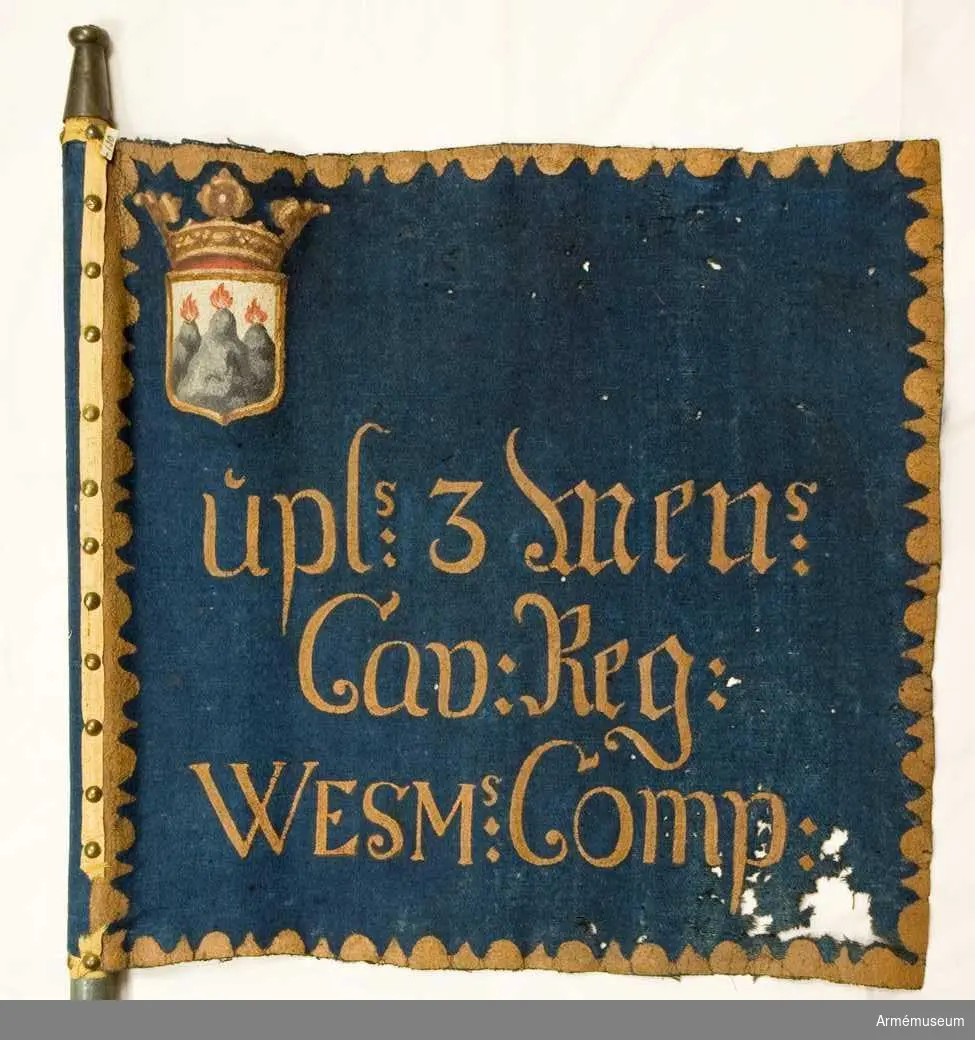 ůpl^s: 3 Men^s:
Cav: Reg:
WESM^s: Comp:
Armémuseum